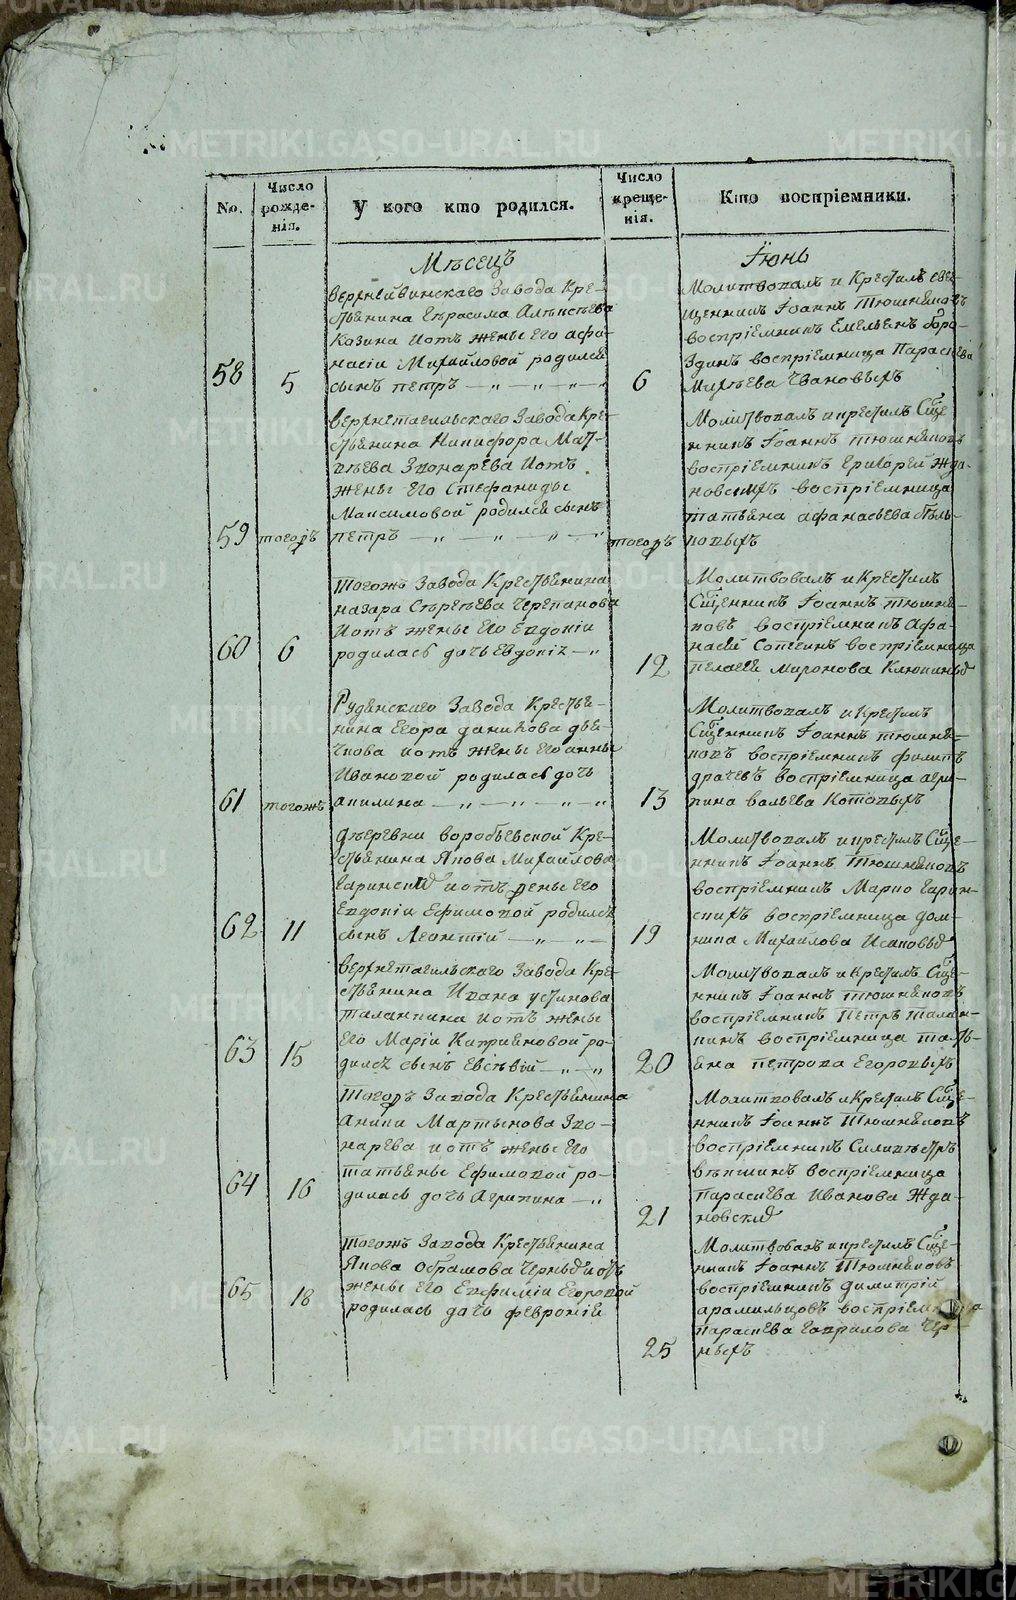 No.
Число рожденія.
У кого кто родился.
Число крещенія.
Кто воспріемники.
Мѣсецъ
Іюнь
58
5
верхнейвинскаго Завода Кре-
стьянина Герасима Алексѣева
Козина иотъ жены его афа-
насіи Михайловой родился
сынъ петръ
6
Молитвовалъ и Крестилъ свя-
щенникъ Іоаннъ Тюшняковъ
воспріемникъ Емельянъ боро-
здинъ воспріемница Параскева
59
тогожъ
верхнетагильскаго Завода Кре-
стьянина Никифора Мат-
вѣева Звонарева иотъ
жены его Стефаниды
Максимовой родился сынъ
петръ
тогожъ
Молитвовалъ и крестилъ Сще-
нникъ Іоаннъ тюшняковъ
воспріемникъ Григорей жда-
новскихъ воспріемница
татьяна афанасьева
60
6
тогожъ Завода Крестьянина
назара Сергѣева Черепанова
иотъ жены его Евдокіи
родилась дочь евдокія
12
Молитвовалъ и Крестилъ
Сщенникъ Іоаннъ тюшня-
ковъ воспріемникъ афа-
насей Сопегинъ воспріемница
пелагея Миронова Клюкиныхъ
61
тогожъ
Рудянскаго Завода Крестья-
нина Егора данилова дья-
чкова иотъ жены его анны
Ивановой родилась дочь
акилина
13
Молитвовалъ и Крестилъ
Сщенникъ Іоаннъ тюшня-
ковъ воспріемникъ филипъ
драчевъ воспріемница агри-
пина
62
11
деревни воробьевской Кре-
стьянина Якова Михайлова
Гаринскихъ иотъ жены его
Евдокіи Ефимовой родился
сынъ Леонтій
19
Молитвовалъ и крестилъ Сще-
нникъ Іоаннъ Тюшняковъ
воспріемникъ Марко Гарин-
скихъ воспріемница дом-
ника Михайлова Исаковыхъ
63
15
верхнетагильскаго Завода Кре-
стьянина Ивана устинова
Таланкина иотъ жены
его Маріи Каприяновой ро-
дился сынъ Евсѣвій
20
Молитвовалъ и крестилъ Сще-
нникъ Іоаннъ тюшняковъ
воспріемникъ Петръ талан-
кинъ воспріемница тать-
яна петрова Егоровыхъ
64
16
Тогожъ Завода Крестьянина
Аники Мартынова Зво-
нарева иотъ жены его
татьяны Ефимовой ро-
дилась дочь агрипина
21
Молитвовалъ и Крестилъ Сще-
нникъ Іоаннъ Тюшняковъ
воспріемникъ Силивѣстръ
вѣкшинъ воспріемница
параскева Иванова Жда-
новскихъ
65
18
тогожъ Завода Крестьянина
Якова Обрамова Черныхъ иотъ
жены его Евфиміи Егоровой
родилась дочь февронія
25
Молитвовалъ и крестилъ Сще-
нникъ Іоаннъ Тюшняковъ
воспріемникъ димитрій
арамильцовъ воспріемница
параскева гаврилова Чер-
ныхъ
METRIKI.GASO-URAL.RU